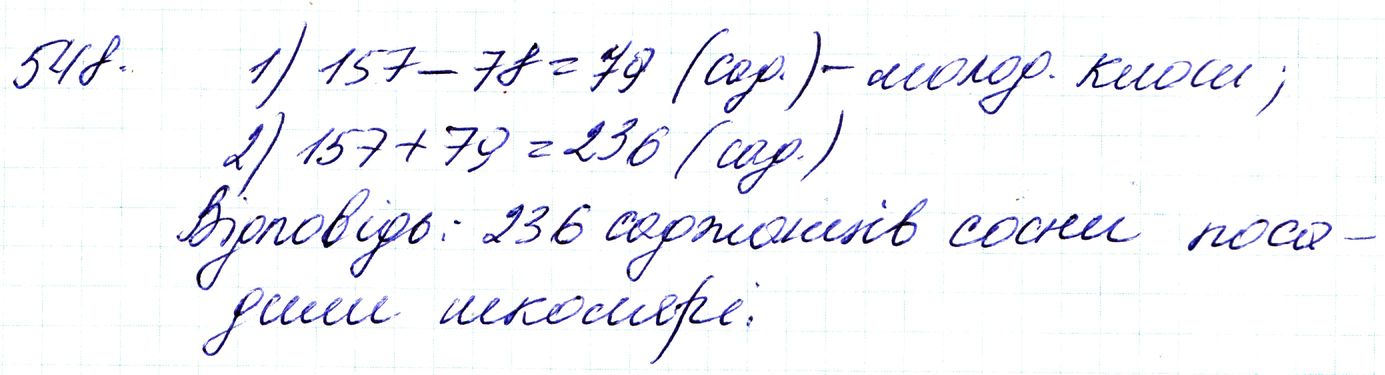 548. 1) 157 – 78 = 79 (сад.) – молод. класи;
2) 157 + 79 = 236 (сад.)
Відповідь: 236 саджанців сосни поса-
дили школярі.